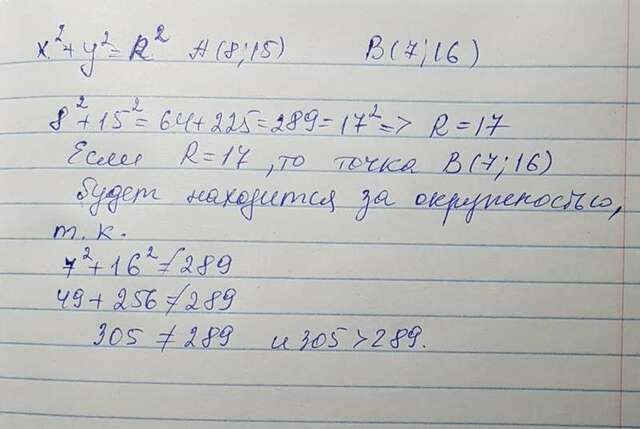 x²+y²=R² A(8;15) B(7;16)
8²+15²=64+225=289=17²=> R=17
Если R=17, то точка B(7;16)
будет находится за окружностью,
т.к.
7²+16²≠289
49+256≠289
305≠289 и 305>289.